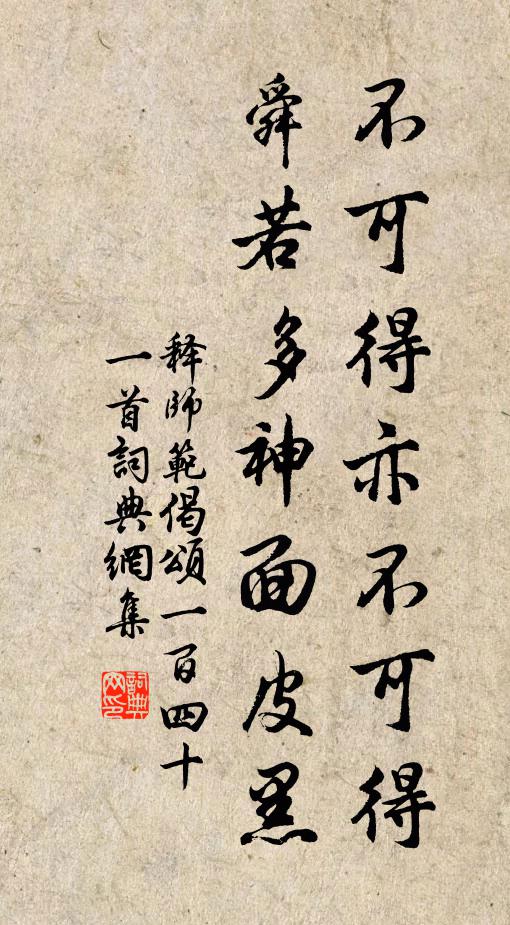 不可得亦不可得
舜若多神面皮黑
释師範偈頌一百四十
一首詞典網集
詞典网印